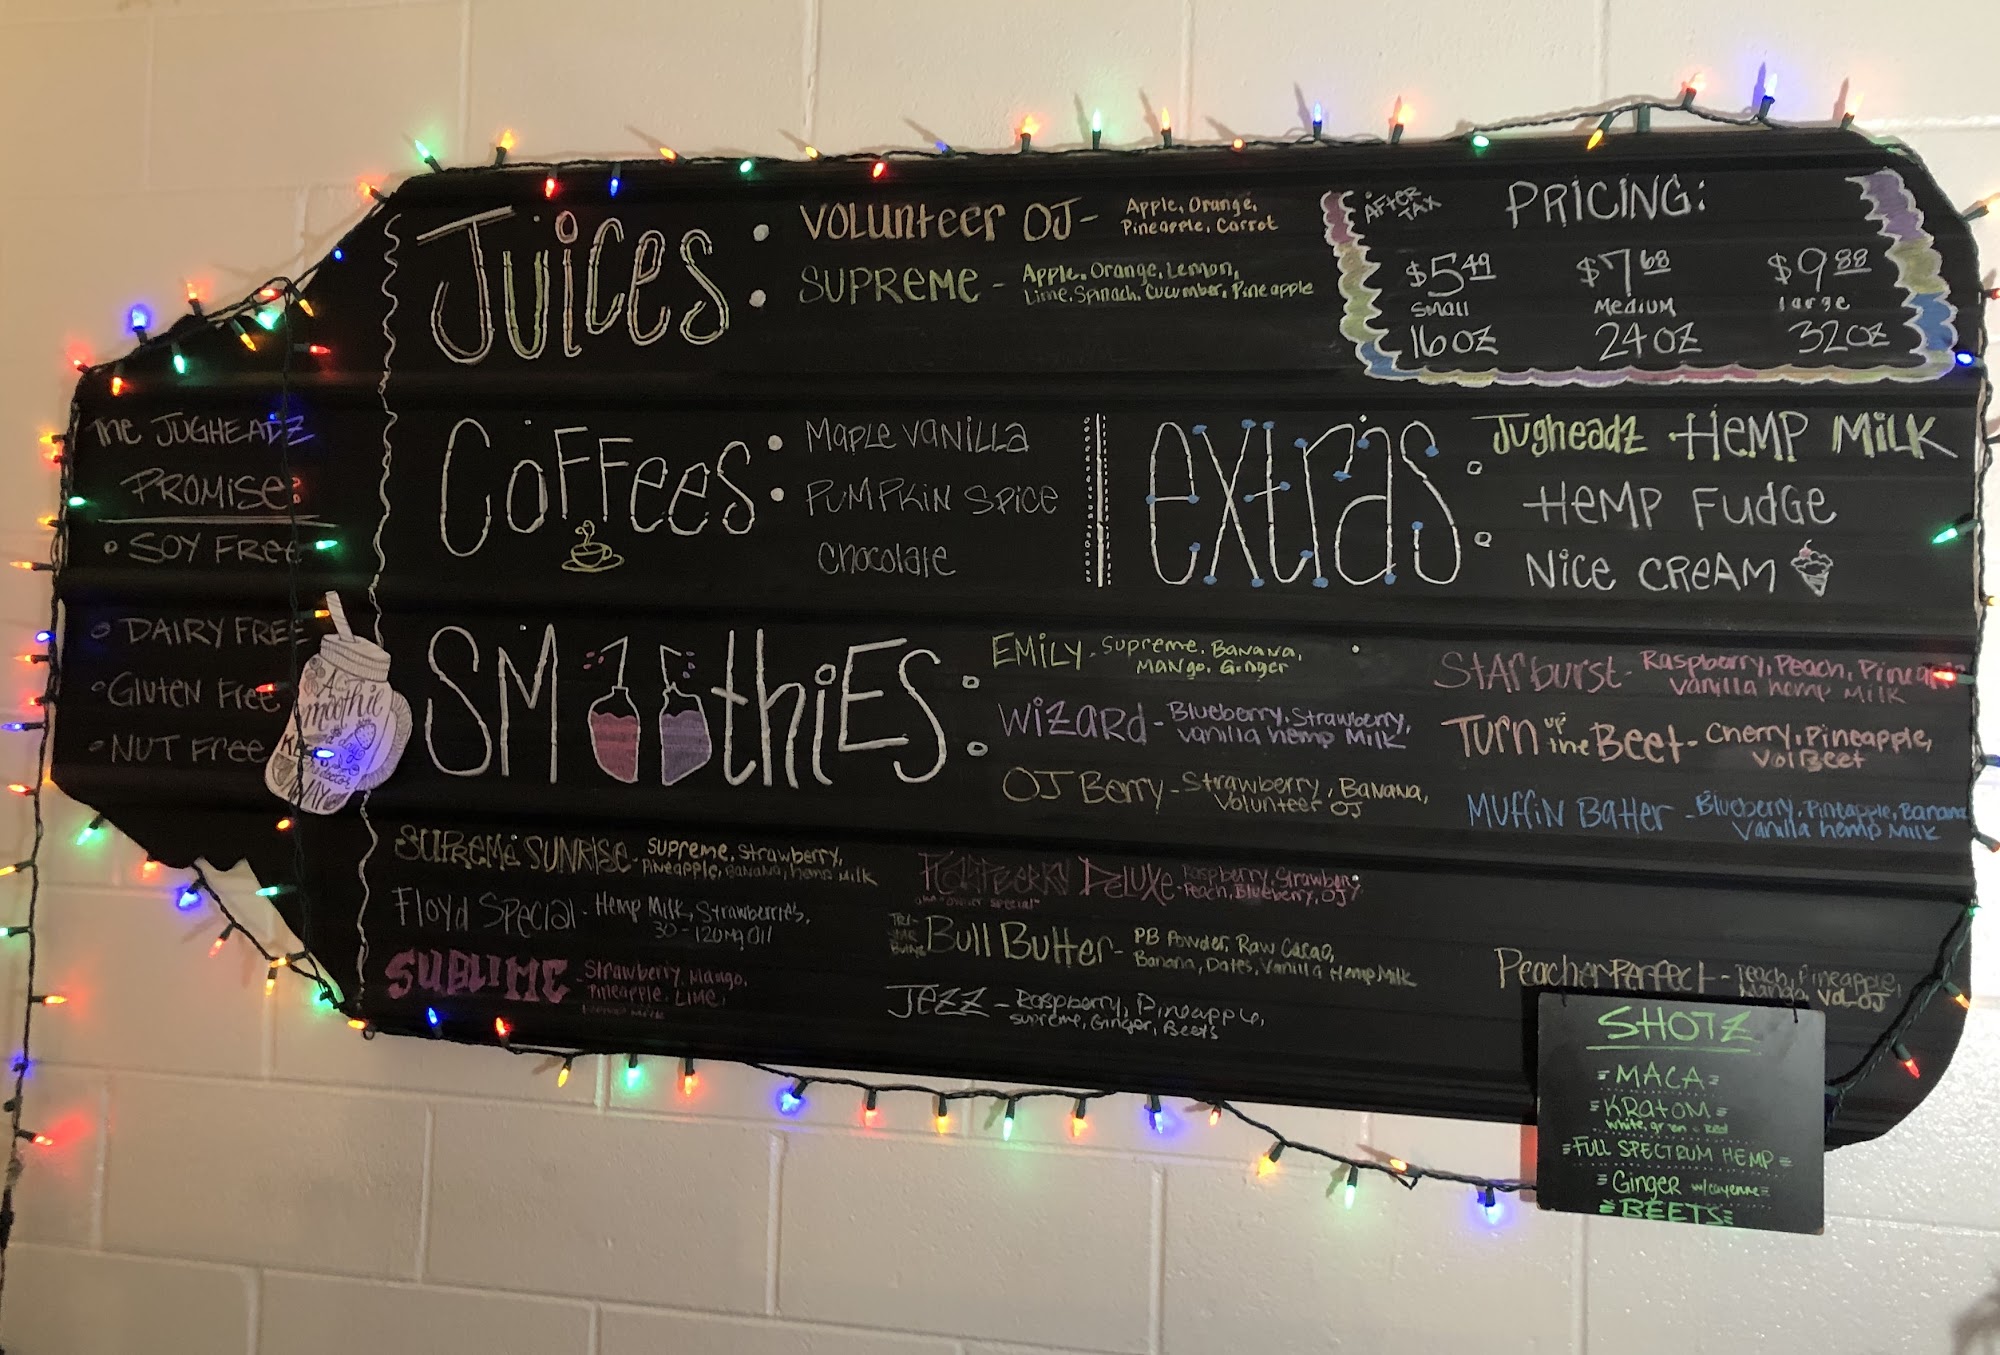 THE JUGHEADZ
PROMISE:
SOY FREE
DAIRY FREE
GLUTEN FREE
NUT FREE
A
Smoothie
AWAY
Juices:
VOLUNTEER OJ- Apple, Orange,
Pineapple, Carrot
SUPREME - Apple, Orange, Lemon,
Lime, Spinach, Cucumber, Pineapple
AFTER
TAX
PRICING:
$5.49 $7.68 $9.88
Small Medium large
16oz 24oz 32oz
Coffees:
MAPLE VANILLA
PUMPKIN SPICE
Chocolate
extras:
Jugheadz HEMP MILK
HEMP FUDGE
NICE CREAM
SMOOthiES:
EMILY - Supreme, Banana,
Mango, Ginger
WIZARD - Blueberry, Strawberry,
Vanilla hemp Milk
OJ Berry - Strawberry, Banana,
Volunteer OJ
STARburst - Raspberry, Peach,
Vanilla hemp Milk
Turn up the Beet - Cherry, Pineapple,
Vol Beet
MUffIN BAtter - Blueberry, Pineapple, Banana
Vanilla hemp Milk
SUPREME SUNRISE - Supreme, Strawberry,
Pineapple, Banana, hemp Milk
Floyd Special - Hemp Milk, Strawberries,
30-120mg Oil
SUBLIME - Strawberry, Mango,
Pineapple, Lime,
hemp Milk
DELUXE - Raspberry, Strawberry,
Peach, Blueberry, OJ
aka "owner special"
Bull Butter - PB Powder, Raw Cacao,
Banana, Dates, Vanilla Hemp Milk
JEZZ - Raspberry, Pineapple,
Supreme, Ginger, Beets
Peacher Perfect - Peach, Pineapple,
Mango, Vol OJ
SHOTZ
MACA
KRATOM
white, green + red
FULL SPECTRUM HEMP
GINGER w/cayenne
BEETS